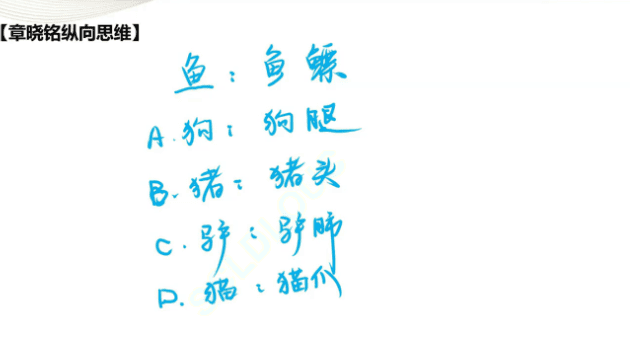 【章晓铭纵向思维】
鱼：鱼鳔
A.狗：狗腿
B.猪：猪头
C.驴：驴肺
D.猫：猫爪